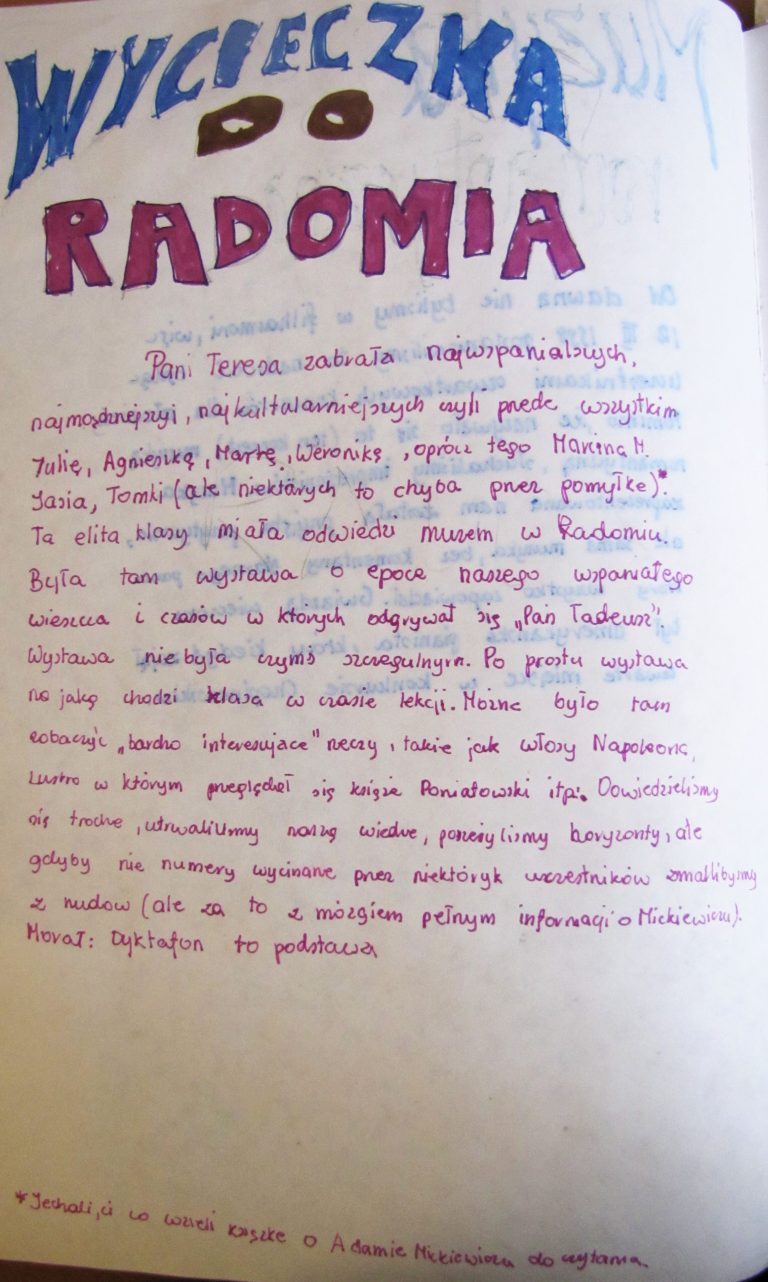 WYCIECZKA
DO
RADOMIA
Pani Teresa zabrała najwspanialszych,
najmądrzejszyi, najkulturalniejszych czyli przede wszystkim
Julię, Agnieszkę, Martę, Weronikę, oprócz tego Marcina M.
Jasia, Tomki (ale niektórych to chyba przez pomyłkę)*.
Ta elita klasy miała odwiedzi muzem w Radomiu.
Była tam wystawa o epoce naszego wspaniałego
wieszcza i czasów w których odgrywał się „Pan Tadeusz".
Wystawa nie była czymś szczegulnym. Po prostu wystawa
na jaką chodzi klasa w czasie lekcji. Można było tam
zobaczyć „bardzo interesujace" rzeczy, takie jak włosy Napoleona,
Lustro w którym przeglądał się książe Poniatowski itp. Dowiedzieliśmy
się troche, utrwaliliśmy naszą wiedze, poszeżyliśmy horyzonty, ale
gdyby nie numery wycinane przez niektóryk uczestników zmarlibyśmy
z nudow (ale za to z mózgiem pełnym informacji o Mickiewiczu).
Morał: Dyktafon to podstawa
*Jechali, ci co wzieli ksiązke o Adamie Mickiewiczu do czytania.